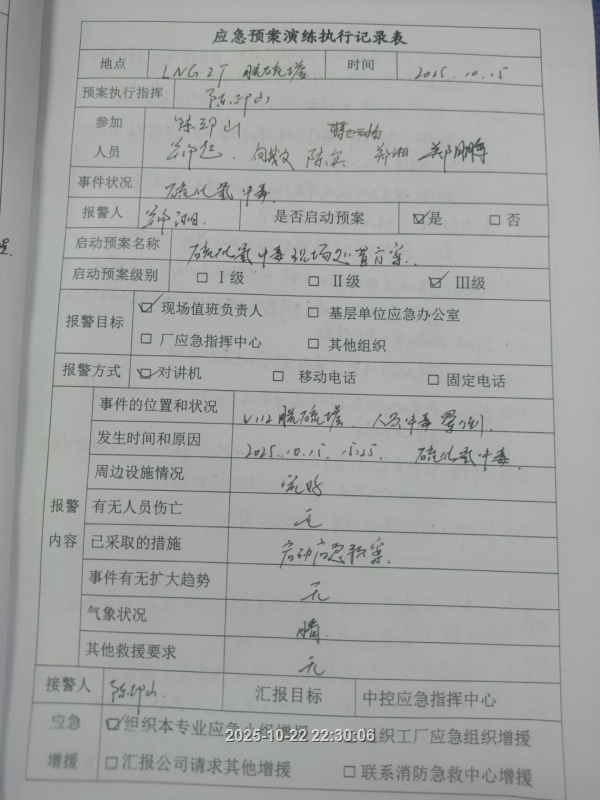 应急预案演练执行记录表
地点 LNG 2T 脱硫塔 时间 2025.10.15
预案执行指挥 陈印山
参加 陈印山
人员 陈实 郑湘 郑鹏
事件状况 硫化氢中毒
报警人 是否启动预案 ☑是 □否
启动预案名称 硫化氢中毒现场处置方案.
启动预案级别 □Ⅰ级 □Ⅱ级 ☑Ⅲ级
报警目标 ☑现场值班负责人 □基层单位应急办公室
□厂应急指挥中心 □其他组织
报警方式 ☑对讲机 □移动电话 □固定电话
报警内容
事件的位置和状况 V112脱硫塔 人员中毒晕倒.
发生时间和原因 2025.10.15. 15:25. 硫化氢中毒.
周边设施情况 完好
有无人员伤亡 无
已采取的措施 启动应急预案.
事件有无扩大趋势 无
气象状况 晴.
其他救援要求 无
接警人 陈印山. 汇报目标 中控应急指挥中心
应急增援 ☑组织本专业应急小组增援 组织工厂应急组织增援
□汇报公司请求其他增援 □联系消防急救中心增援
2025-10-22 22:30:06